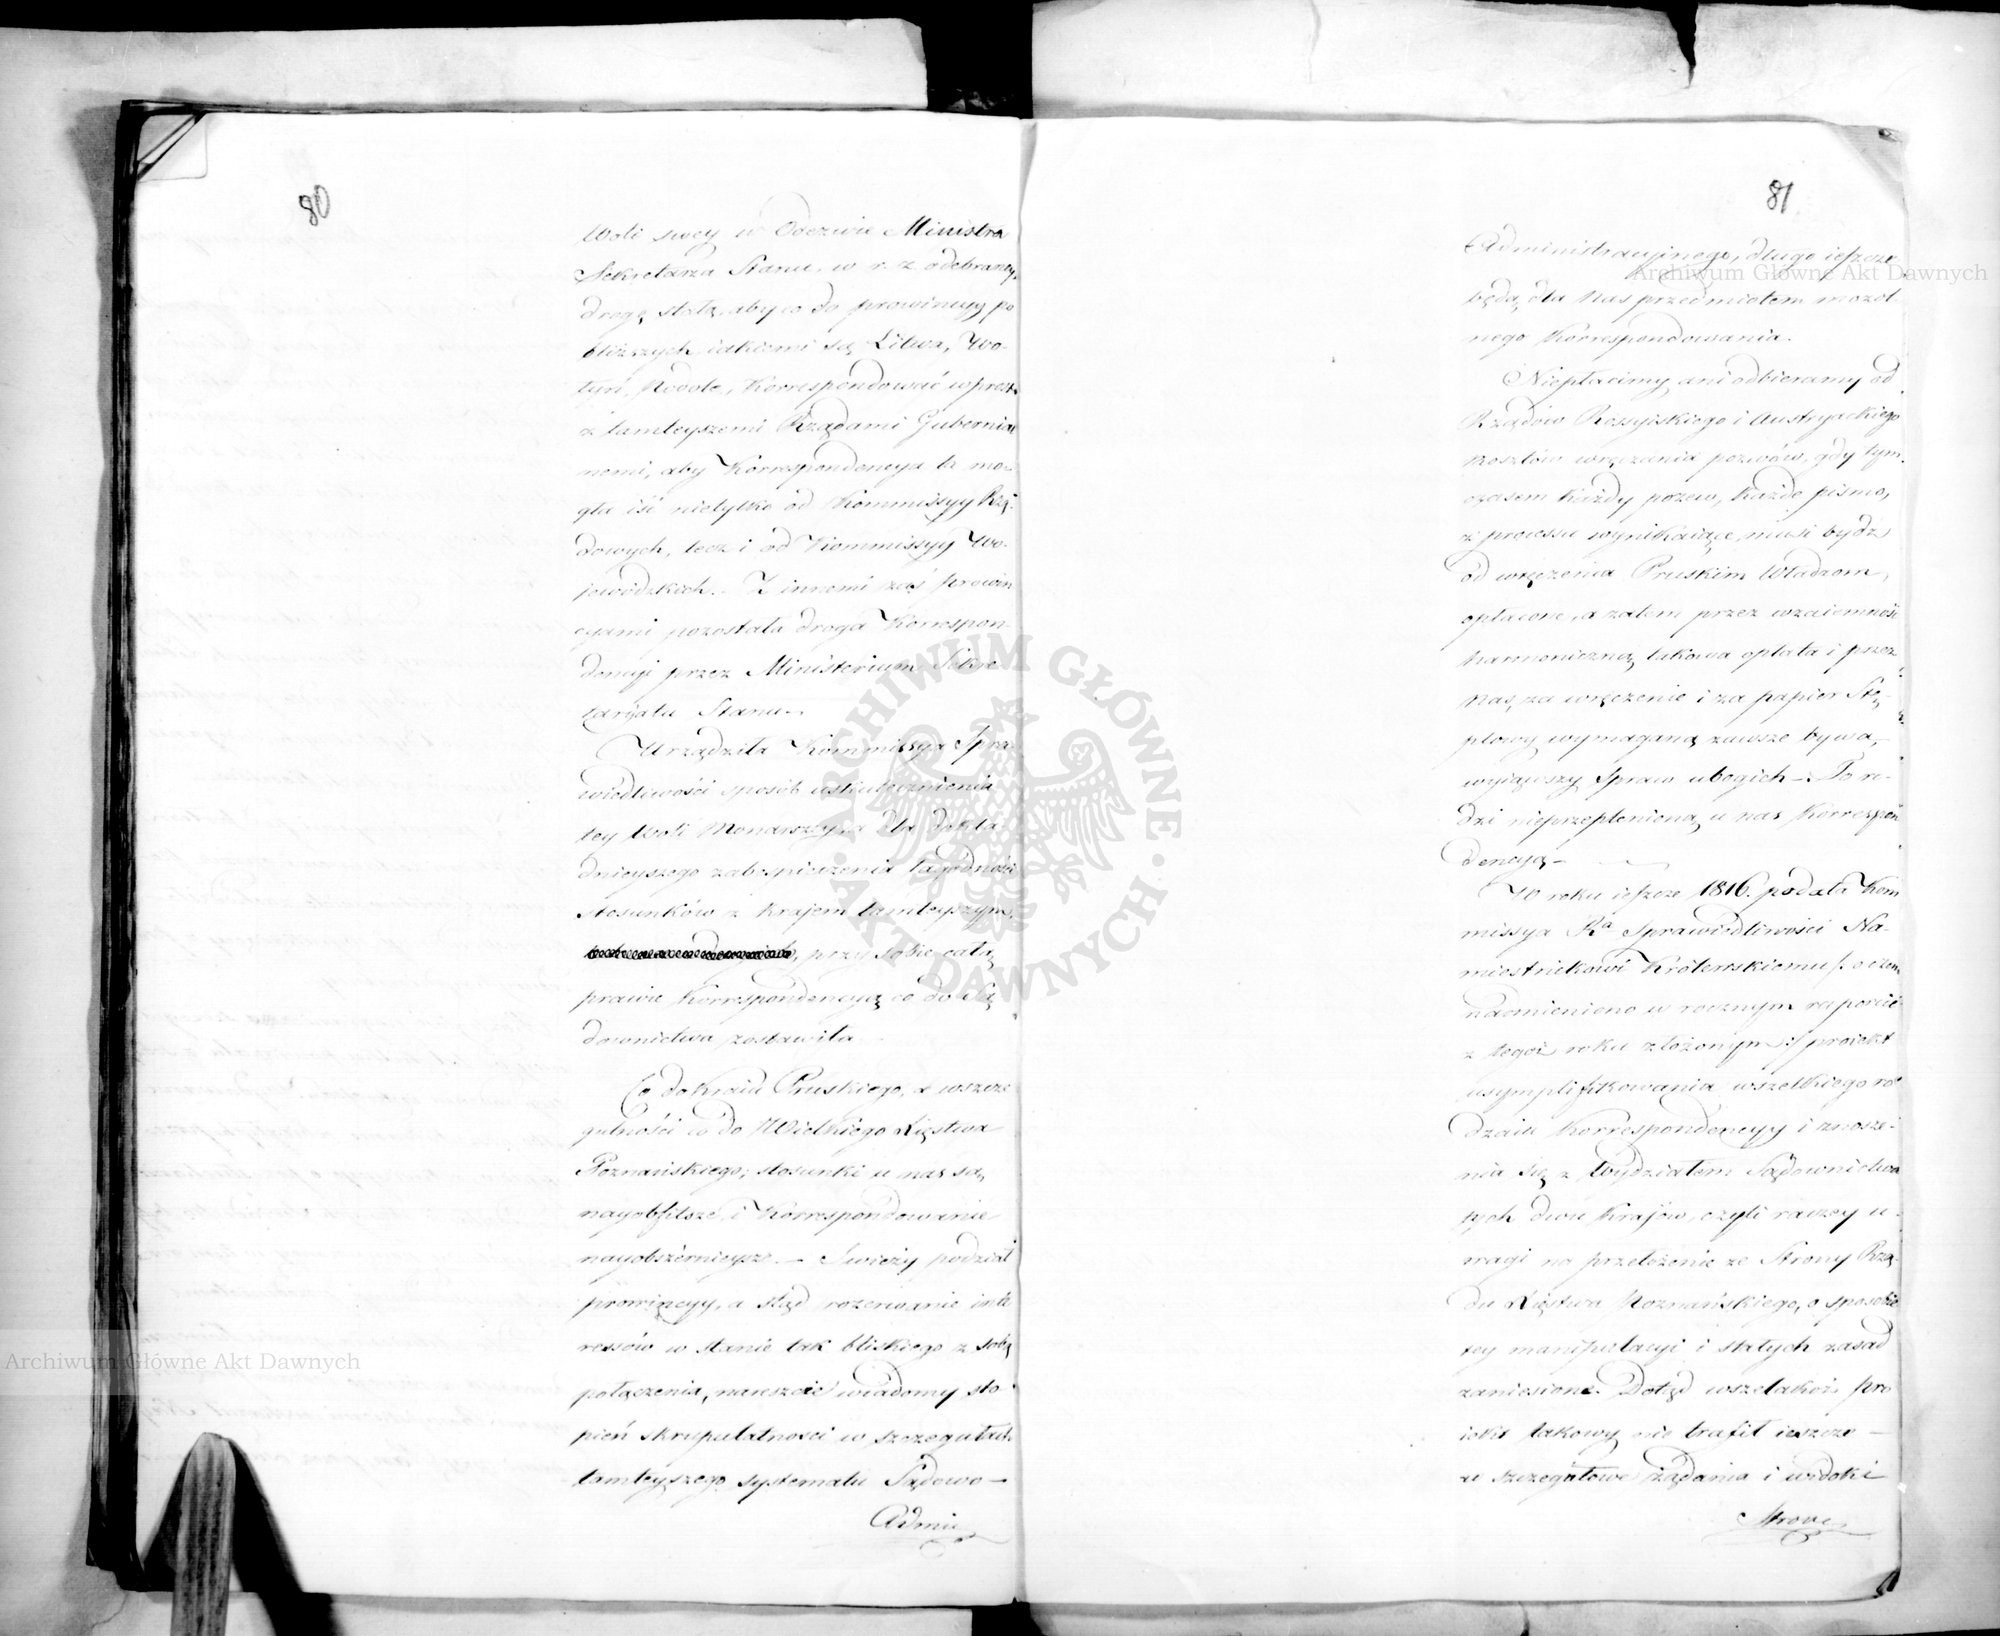 80
Woli swey w Odezwie Ministra
Sekretarza Stanu, w r. z. odebraney,
drogę stałą, aby co do prowincyy po
bliższych iakiemi są Litwa, Wo-
łyń, Podole, Korrespondować wprost
z tamteyszemi Rządami Gubernial
nemi, aby Korrespondencya ta mo-
gła iść nietylko od Kommissyy Rzą-
dowych, lecz i od Kommissyy Wo-
jewódzkich. Z innemi zaś prowin
cyami pozostała droga Korrespon-
dencyi przez Ministerium Sekre
taryatu Stanu.
Urządziła Kommissya Spra-
wiedliwości sposób uskutecznienia
tey Woli Monarszey, a dla dokła-
dnieyszego zabespieczenia łagodności
stosunków z krajem tamteyszym,
przy sobie całą
prawie Korrespondencyą co do Są
downictwa zostawiła.
Co do Kraiu Pruskiego, a wszcze
gulności co do Wielkiego Xięstwa
Poznańskiego; stosunki u nas są
nayobfitsze, i Korrespondowanie
nayobszernieysze. — Świeży podział
prowincyy, a stąd rozerwanie inte
ressów w stanie tak bliskiego z sobą
połączenia, nareszcie wiadomy sto
pień skrupulatności w szczegułach
tamteyszego systematu Sądowo —
Admi
81
Administracyjnego, długo ieszcze
będą dla Nas przedmiotem mozol-
nego Korrespondowania.
Niepłacimy ani odbieramy od
Rządów Rossyiskiego i Austryackiego
kosztów wręczania pozwów, gdy tym
czasem każdy pozew, każde pismo,
z processu wynikaiące, musi bydź
od wręczenia Pruskim Władzom,
opłacone, a zatem przez wzaiemność
harmoniczną takowa opłata i przez
Nas, za wręczenie i za papier Stę-
plowy wymaganą zawsze bywa,
wyiąwszy Spraw ubogich —. To ro-
dzi nieprzeplenioną u nas Korrespon
dencyą —
W roku ieszcze 1816. podała Kom
missya Rª Sprawiedliwości Na-
miestnikowi Królewskiemu /: o czem
nadmieniono w rocznym raporcie
z tegoż roku złożonym :/ proiekt
usymplifikowania wszelkiego ro
dzaiu Korrespondencyy i znosze-
nia się z Wydziałem Sądownictwa
tych dwu Krajów, czyli raczey u-
wagi na przełożenie ze Strony Rzą-
du Xięstwa Poznańskiego, o sposobie
tey manipulacyi i stałych zasad
zaniesione. Dotąd wszelakoż pro
iekt takowy nie trafił ieszcze —
w szczegułowe żądania i widoki
Strove
Archiwum Główne Akt Dawnych
Archiwum Główne Akt Dawnych
ARCHIWUM GŁÓWNE AKT DAWNYCH